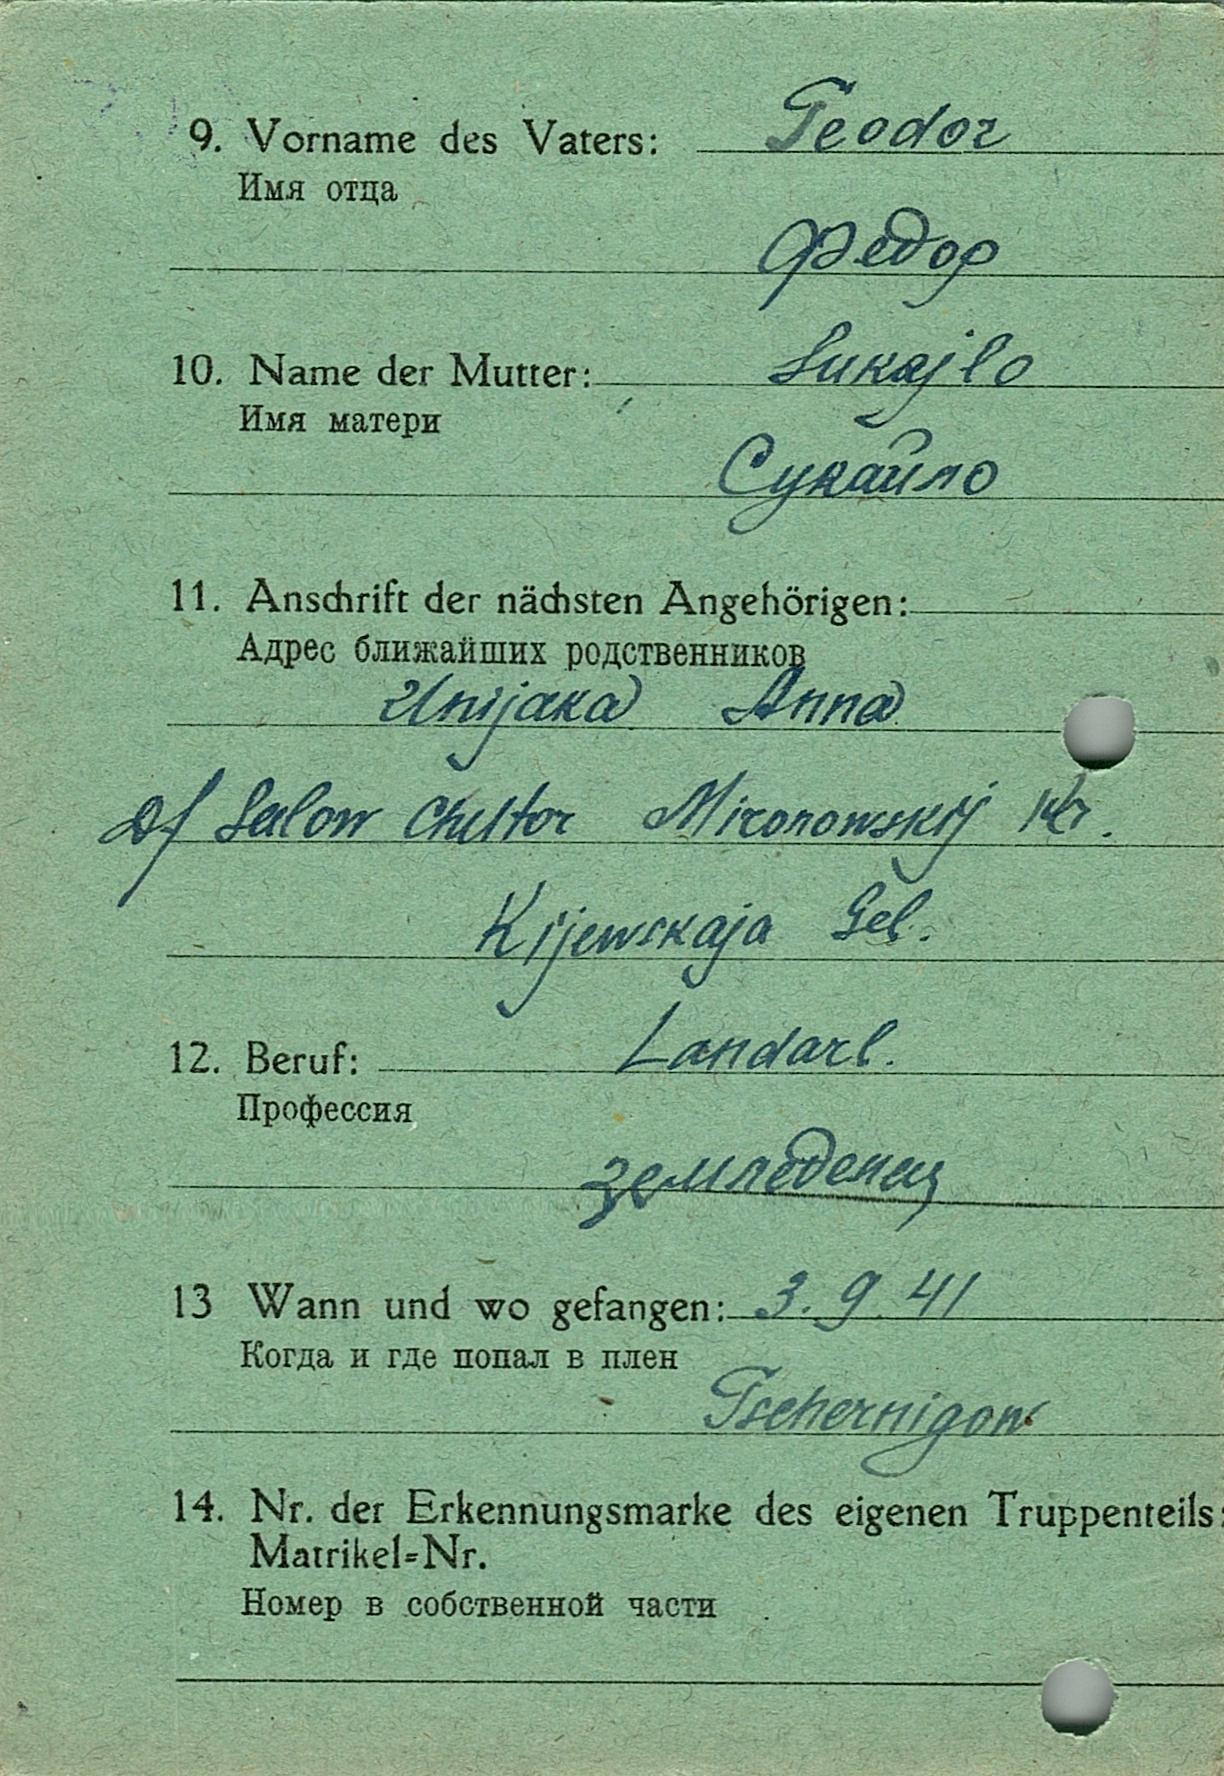 9. Vorname des Vaters: Teodor
Имя отца
Федор
10. Name der Mutter: Sukajlo
Имя матери
Сукайло
11. Anschrift der nächsten Angehörigen:
Адрес ближайших родственников
Unijaka Anna
Df Salow Chutor Mironowskij Kr.
Kijewskaja Gel.
12. Beruf: Landarl.
Профессия
земледелец
13 Wann und wo gefangen: 3. 9. 41
Когда и где попал в плен
Tschernigow
14. Nr. der Erkennungsmarke des eigenen Truppenteils:
Matrikel=Nr.
Номер в собственной части